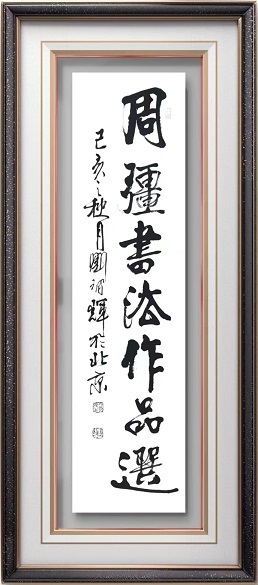 周疆書法作品選
己亥之秋月輝於北京